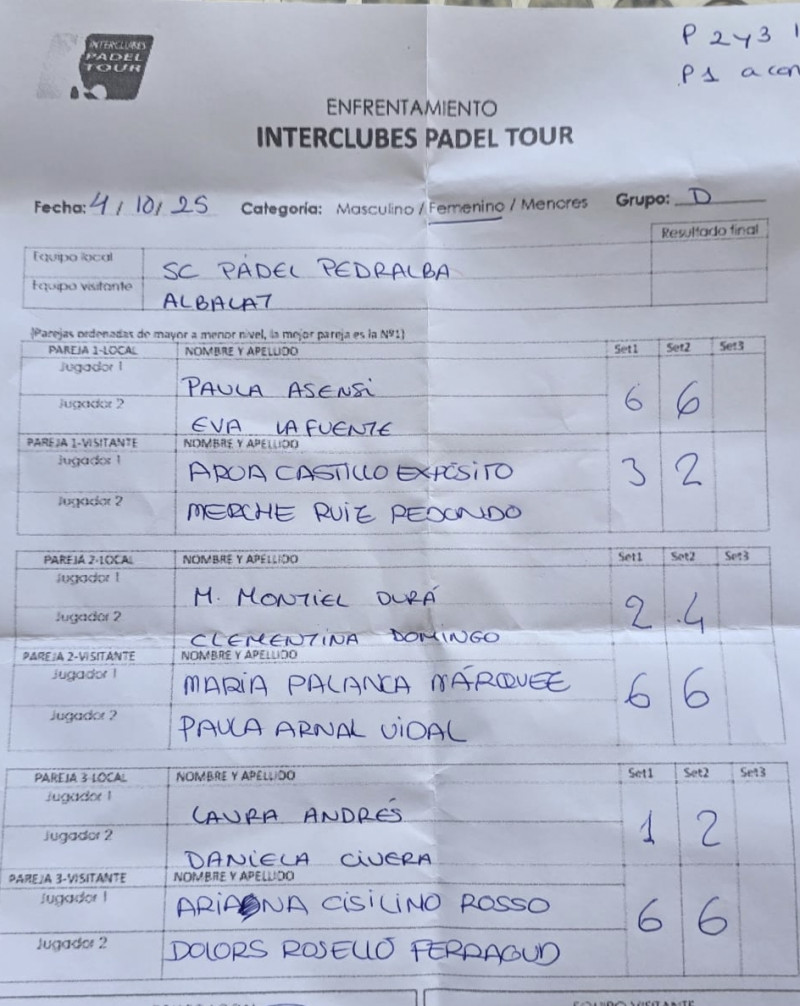 INTERCLUBES
PADEL
TOUR
P 2 y 3
P1 a con
ENFRENTAMIENTO
INTERCLUBES PADEL TOUR
Fecha: 4/10/25 Categoría: Masculino / Femenino / Menores Grupo: D
Resultado final
Equipo local SC PÁDEL PEDRALBA
Equipo visitante ALBALAT
(Parejas ordenadas de mayor a menor nivel, la mejor pareja es la Nº1)
PAREJA 1-LOCAL NOMBRE Y APELLIDO Set1 Set2 Set3
Jugador 1 PAULA ASENSI
Jugador 2 EVA LAFUENTE
6 6
PAREJA 1-VISITANTE NOMBRE Y APELLIDO
Jugador 1 AROA CASTILLO EXPÓSITO
Jugador 2 MERCHE RUIZ REDONDO
3 2
PAREJA 2-LOCAL NOMBRE Y APELLIDO Set1 Set2 Set3
Jugador 1 M. MONTIEL DURÁ
Jugador 2 CLEMENTINA DOMINGO
2 4
PAREJA 2-VISITANTE NOMBRE Y APELLIDO
Jugador 1 MARIA PALANCA MÁRQUEZ
Jugador 2 PAULA ARNAL VIDAL
6 6
PAREJA 3-LOCAL NOMBRE Y APELLIDO Set1 Set2 Set3
Jugador 1 LAURA ANDRÉS
Jugador 2 DANIELA CIVERA
1 2
PAREJA 3-VISITANTE NOMBRE Y APELLIDO
Jugador 1 ARIADNA CISILINO ROSSO
Jugador 2 DOLORS ROSELLÓ FERRAGUD
6 6
EQUIPO VISITANTE